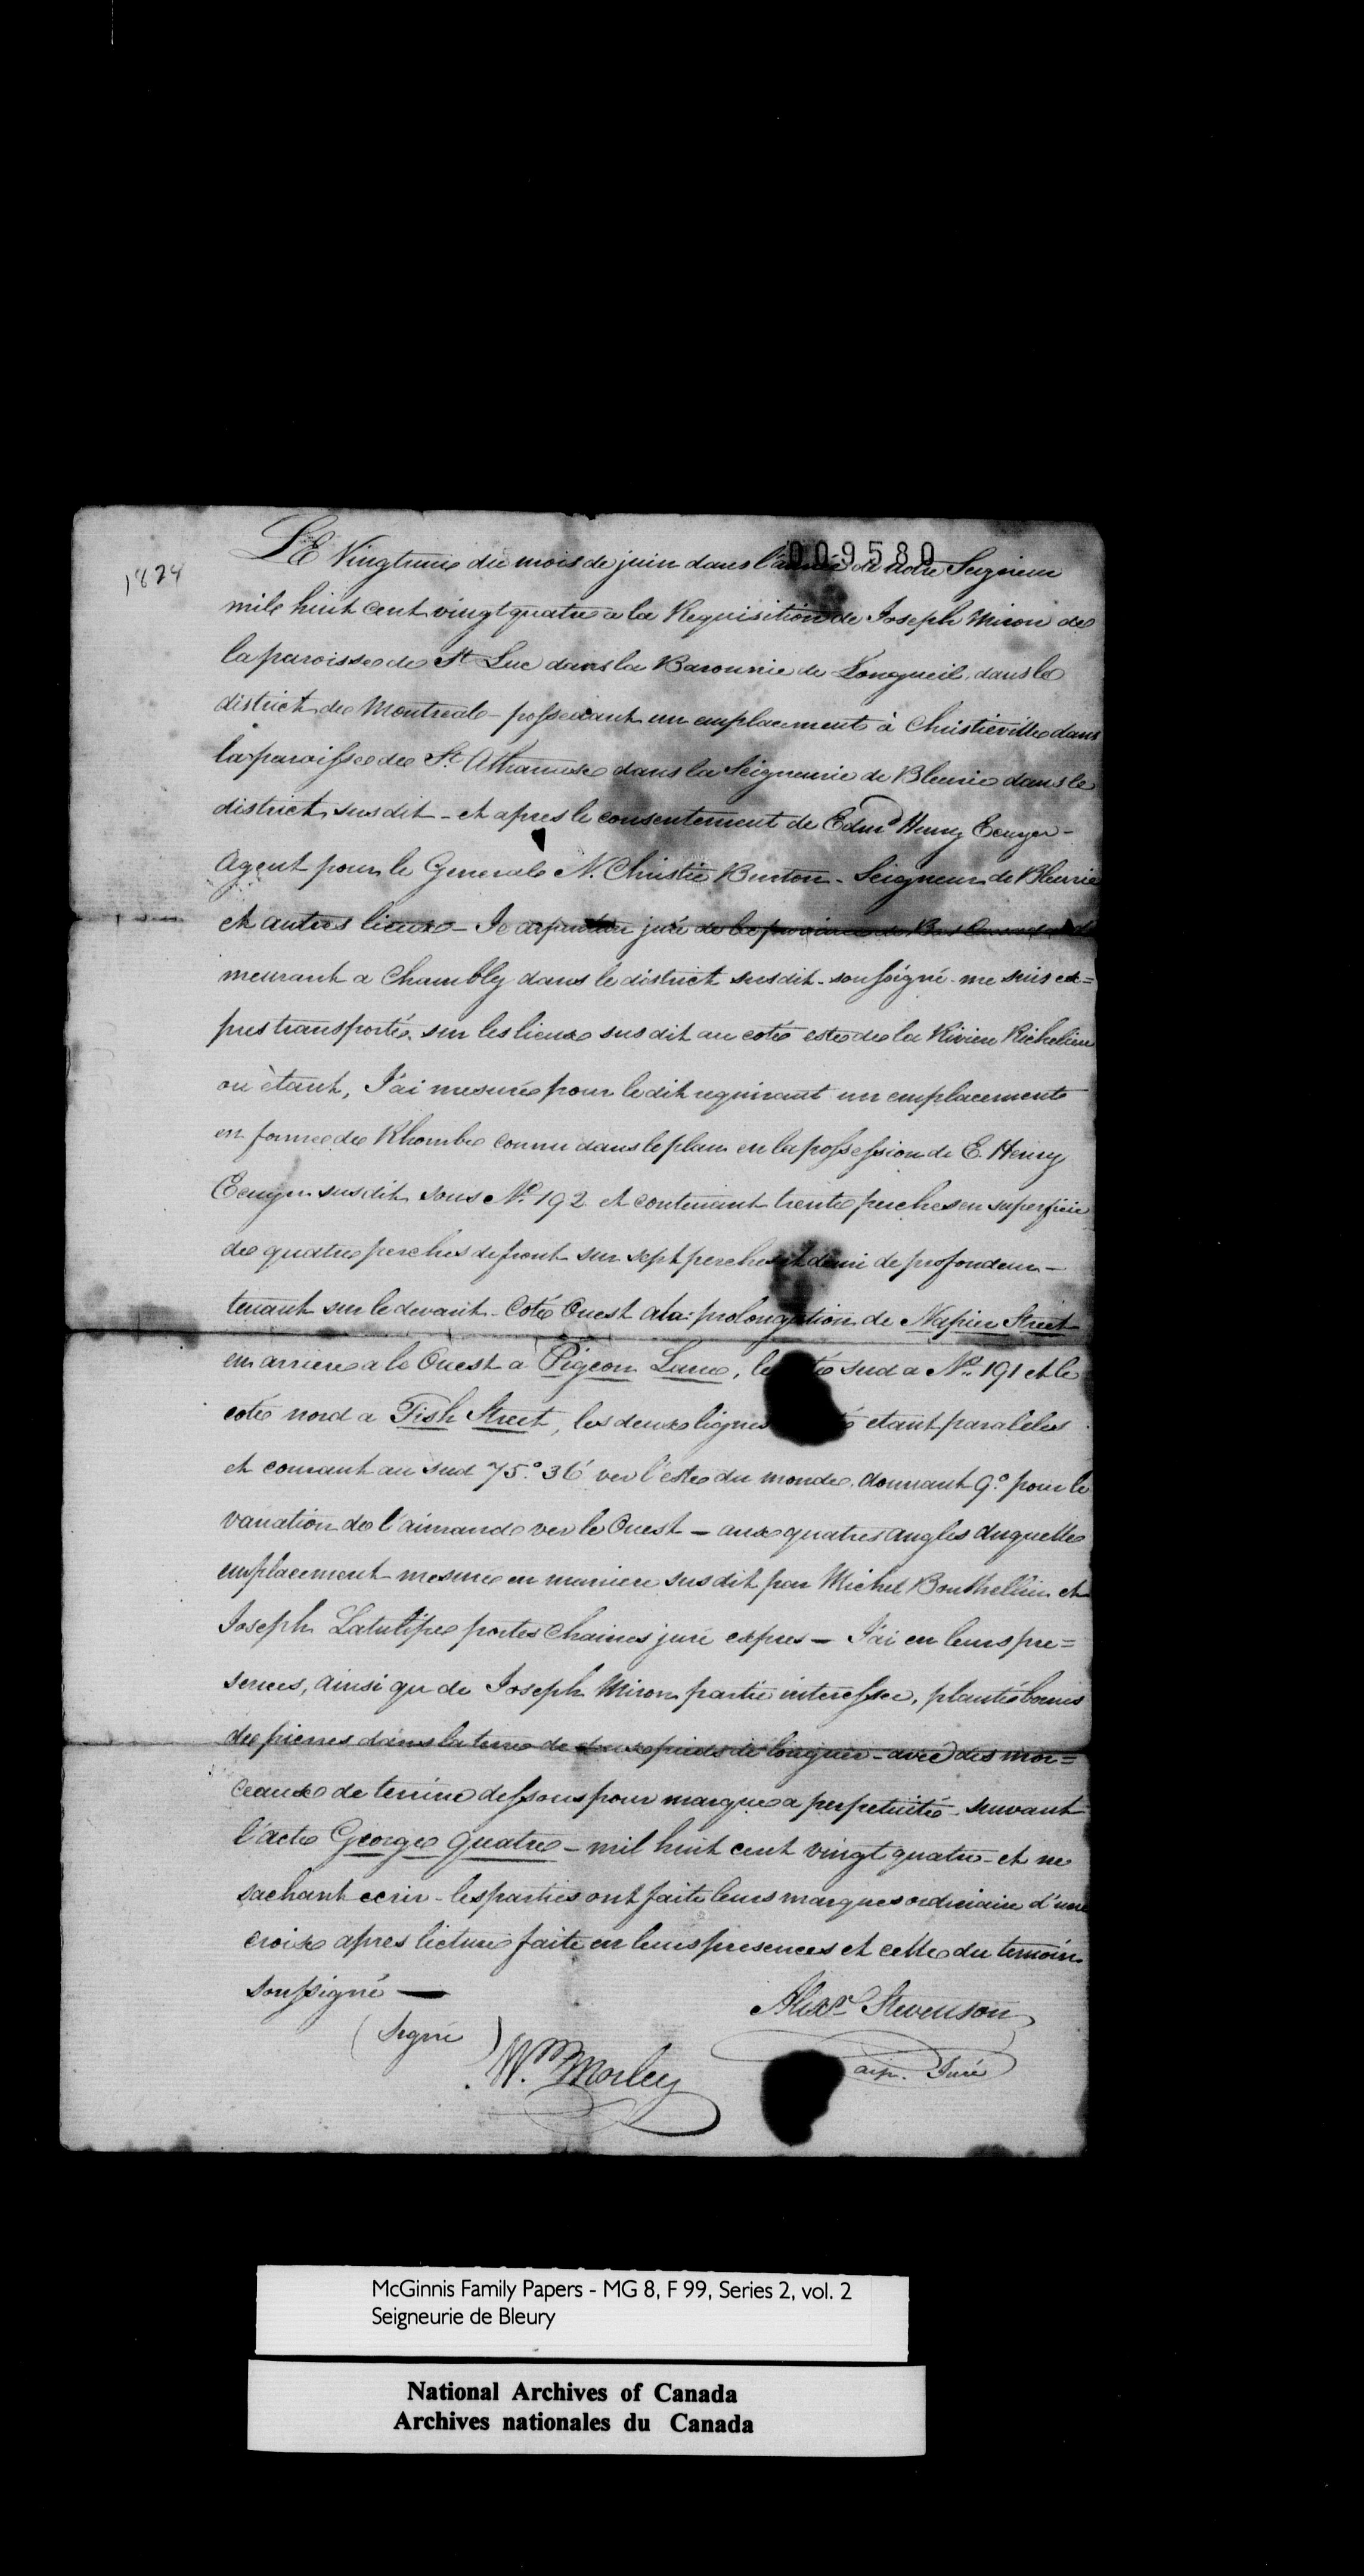 009580
1824
LE Vingtune du mois de juin dans l'année de notre Seigneur
mile huit cent vingt quatre a la Requisition de Joseph Miron de
la paroisse de St Luc dans la Baronnie de Longueil, dans le
district de Montreal - possedant un emplacement à Christieville dans
la paroisse de St. Athanase dans la Seigneurie de Bleurie dans le
district susdit - et apres le consentement de Edmd Henry Ecuyer -
Agent pour le Generale N. Christie Burton - Seigneur de Bleurie
et autres lieux - Je arpenteur juré de la province de Bas Canada de
meurant a Chambly dans le district susdit - soussigné - me suis ex=
pres transporté sur les lieux susdit au coté este de la Riviere Richelieu
ou étant, J'ai mesuré pour le dit requirant un emplacement
en forme de Rhombe connu dans le plan en la possession de E. Henry
Ecuyer susdit sous No. 192 et contenant trente perches en superficie
de quatre perches de front sur sept perches et demi de profondeur -
tenant sur le devant - Coté Ouest a la prolongation de Napier Street
en arriere a le Ouest a Pigeon Lane, le coté sud a No. 191 et le
coté nord a Fish Street, les deux lignes etant paraleles
et courant au sud 75.° 36' ver l'este du monde, donnant 9.° pour le
variation de l'aimande ver le Ouest - aux quatres angles duquelle
emplacement mesuré en maniere susdit par Michel Bouthellier et
Joseph Latulipe portes chaines juré expres - J'ai en leurs pre=
sences, ainsi que de Joseph Miron partie interessee, planté bornes
de pierres dans la terre de deux pieds de longuer - avec des mor=
ceaux de terrine dessous pour marque a perpetuité - suivant
l'acte George quatre - mil huit cent vingt quatre - et ne
sachant ecrir - les parties ont faite leurs marques ordinaire d'une
croix apres lecture faite en leurs presences et celle du temoin
soussigné -
Alexr. Stevenson
arp. Juré
(Signé)
Wm. Morley
McGinnis Family Papers - MG 8, F 99, Series 2, vol. 2
Seigneurie de Bleury
National Archives of Canada
Archives nationales du Canada